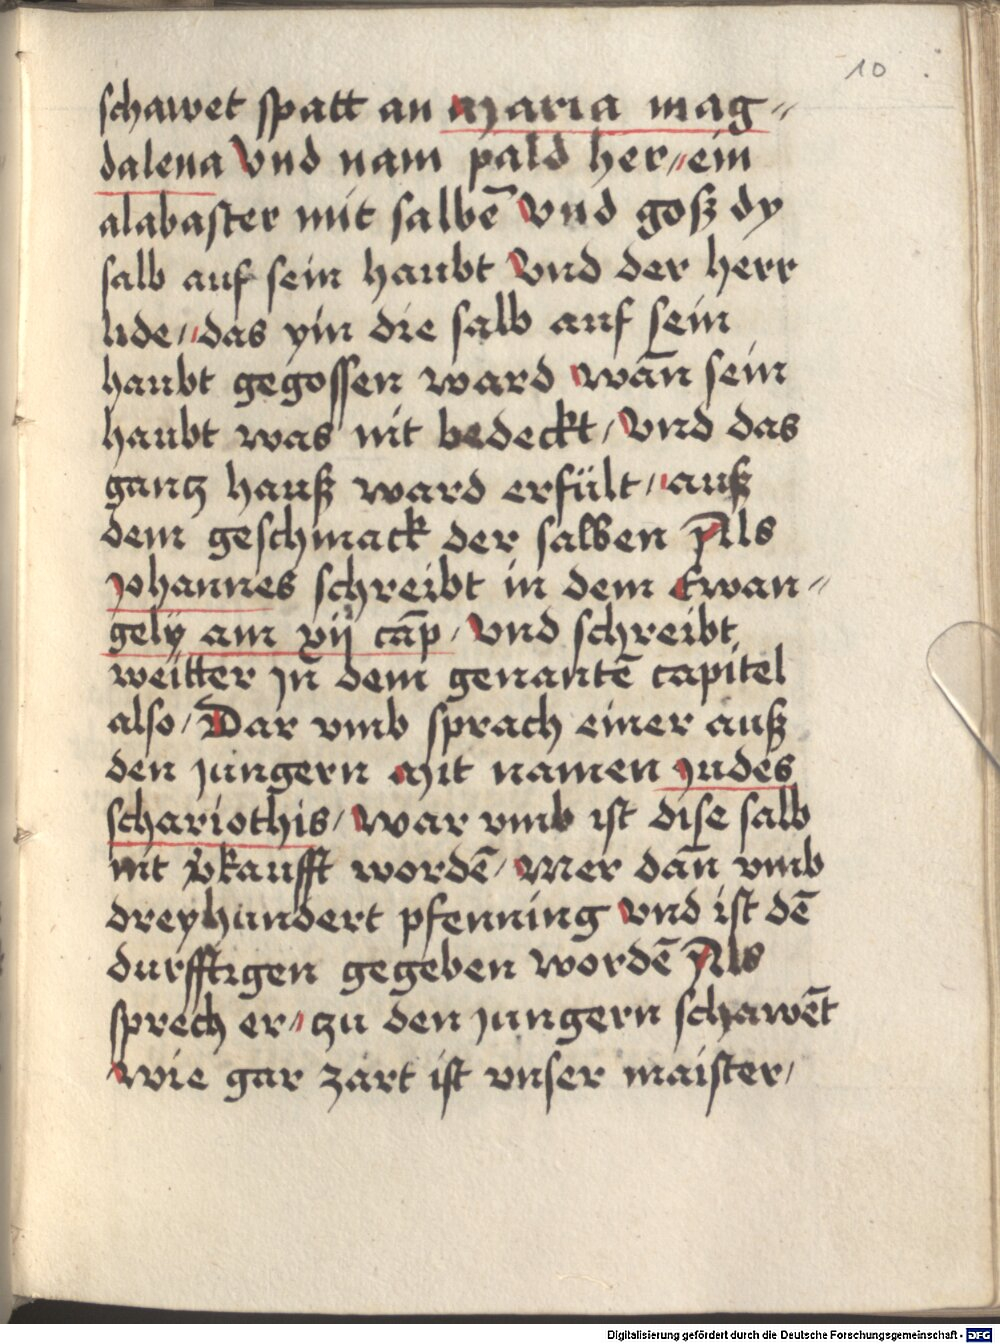 10
schawet spatt an Maria mag〃
dalena Vnd nam pald her〃ein
alabaster mit salbē Vnd goß dy
salb auf sein haubt Vnd der herr
lide〃das yin die salb auf sein
haubt gegossen ward wān sein
haubt was nit bedeckt/Vnd das
gantz hauß ward erfült〃auß
dem geschmack der salben Als
Johannes schreibt in dem Ewan〃
gely am xij cāp/Vnd schreibt
weitter jn dem genantē capitel
also/Dar vmb sprach einer auß
den jungern Mit namen judes
schariothis/War vmb ist dise salb
nit v̄kaufft wordē/Mer dān vmb
dreyhundert pfenning Vnd ist dē
durfftigen gegeben wordē Als
sprech er/tzu den jungern schawēt
Wie gar zart ist vnser maister/
Digitalisierung gefördert durch die Deutsche Forschungsgemeinschaft - DFG